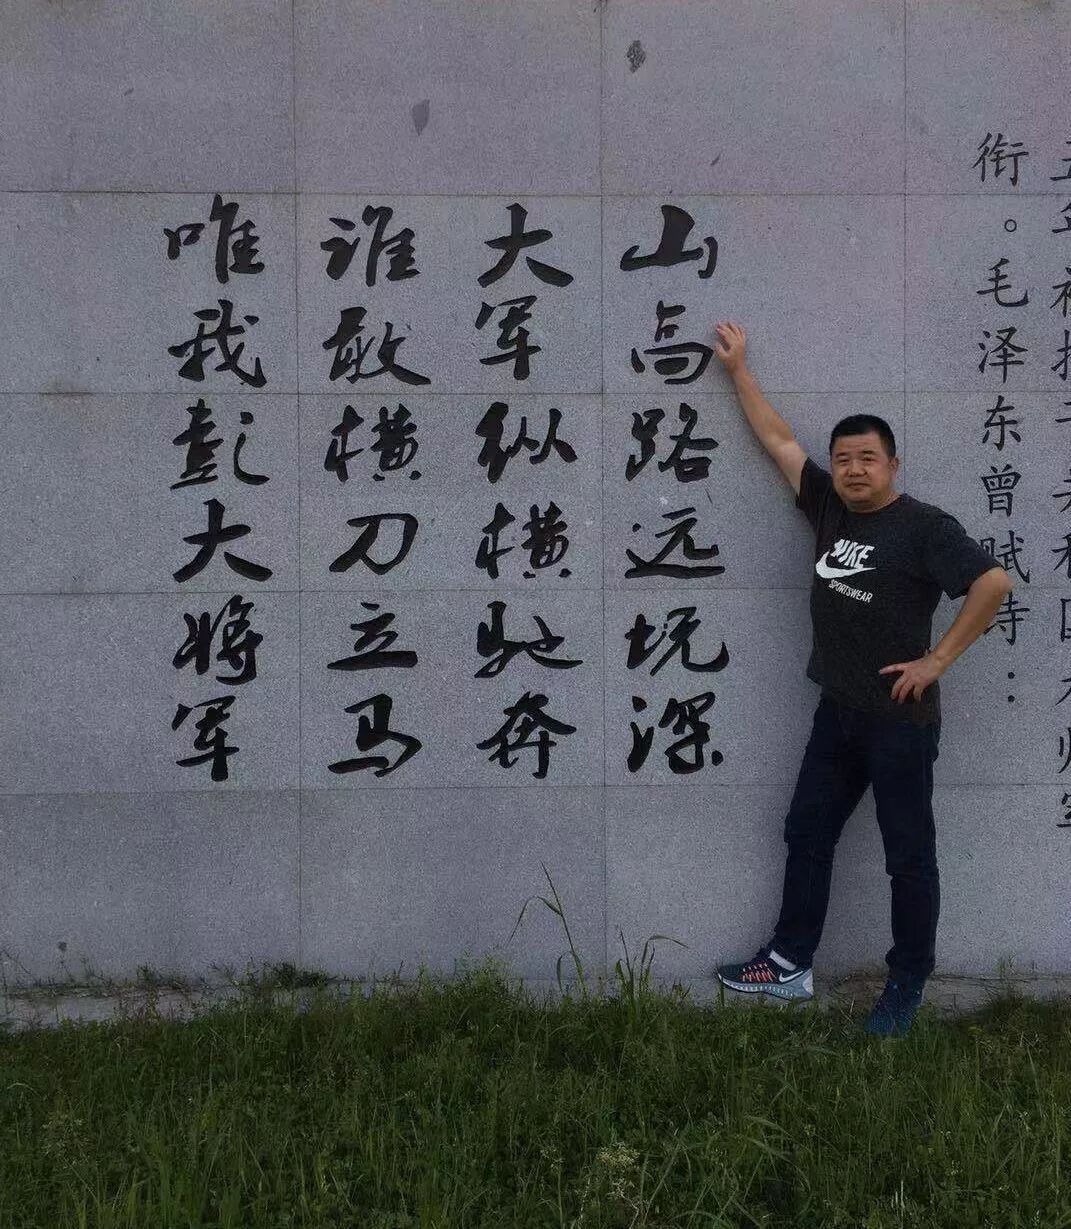 衔。毛泽东曾赋诗：
山高路远坑深
大军纵横驰奔
谁敢横刀立马
唯我彭大将军
NIKE
SPORTSWEAR